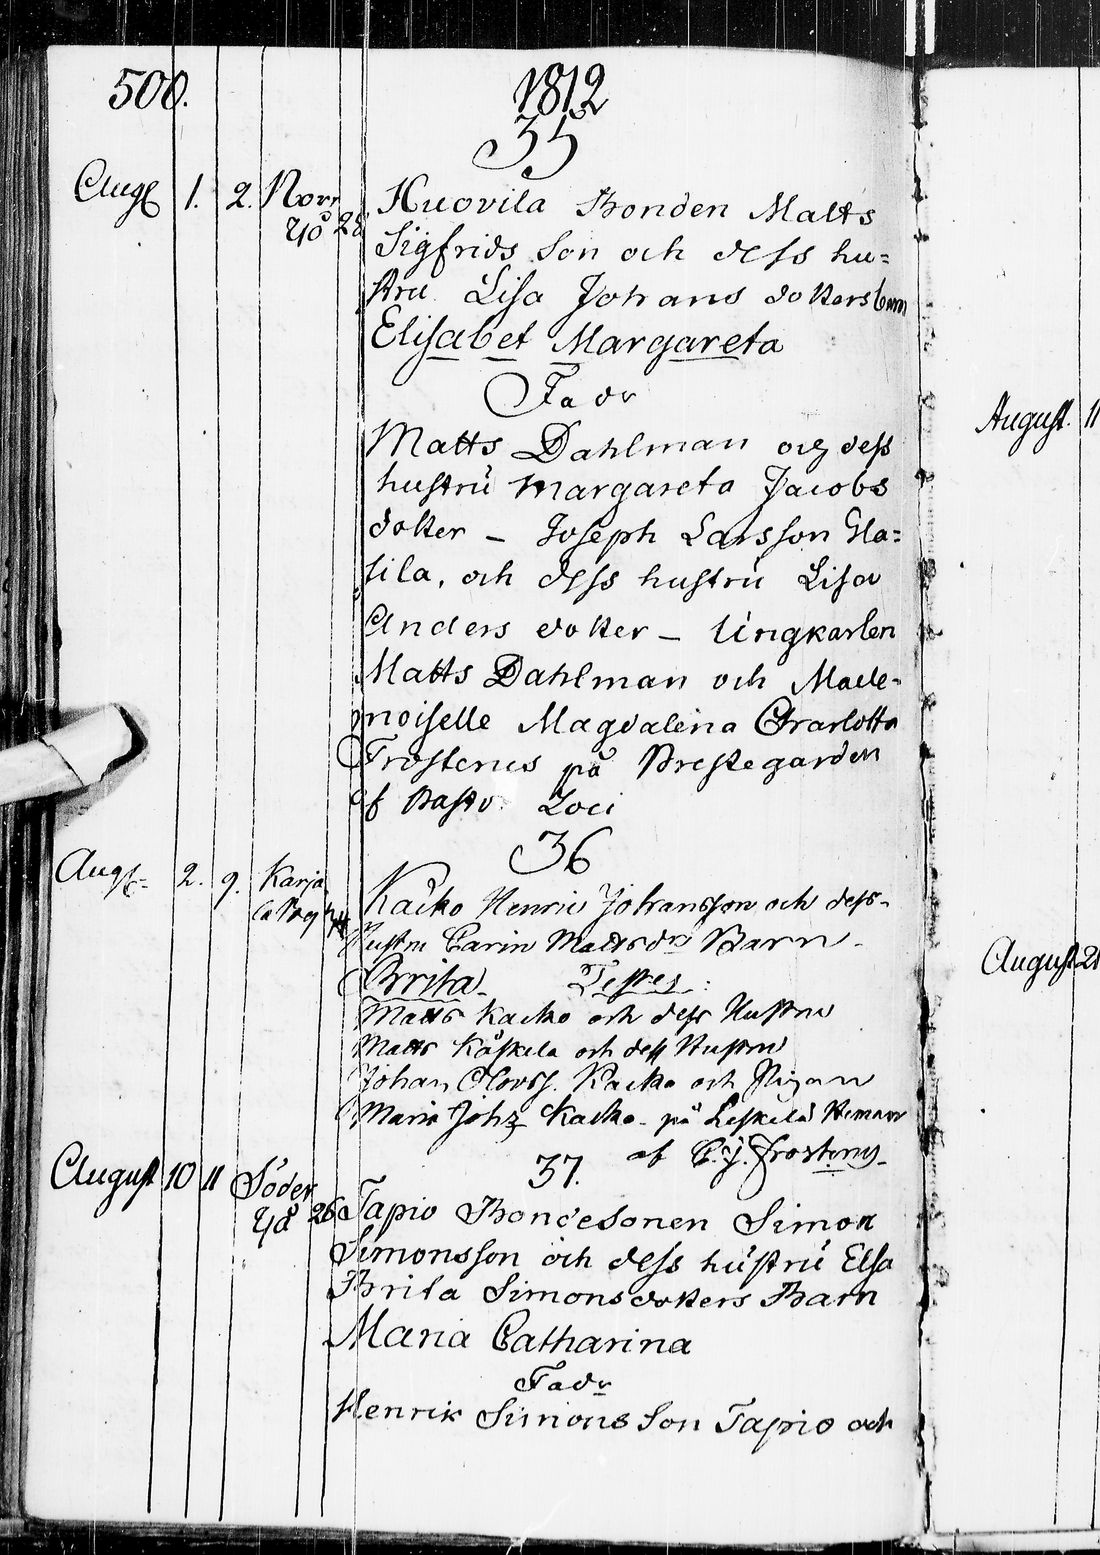 500.
1812
35
Aug 1. 2. Norr Huovila Bonden Matts
yå 28 Sigfrids Son och dess hu=
stru Lisa Johans dotters barn
Elisabet Margareta
Fadr
Matts Dahlman och dess
hustru Margareta Jacobs
dotter – Joseph Larsson Ela=
sila, och dess hustru Lisa
Anders dotter – Ungkarlen
Matts Dahlman och Made=
moiselle Magdalena Charlotta
Frosterus på Prestegården
af Past. Loci
36
Aug 2. 9. Karja Kacko Henric Johansson och dess
Hustru Carin Mattsdr Barn
Brita Testes:
Matts Kacko och dess Hustru
Matts Käskelä och dess Hustru
Johan Olovss. Kacko och Pigan
Maria Joh Kacko på Leskelä Hemman
af C. J. Frosterus
37.
August 10 11 Söder Tapio Bondesonen Simon
yå 26 Simonsson och dess hustru Elsa
Brita Simonsdotters Barn
Maria Catharina
Fadr
Henrik Simons Son Tapio och
August. 11
August 21